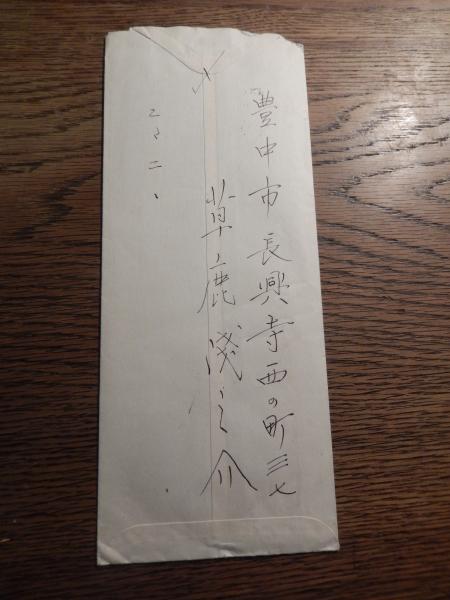 豊中市長興寺西の町三七
草鹿浅之介
〆